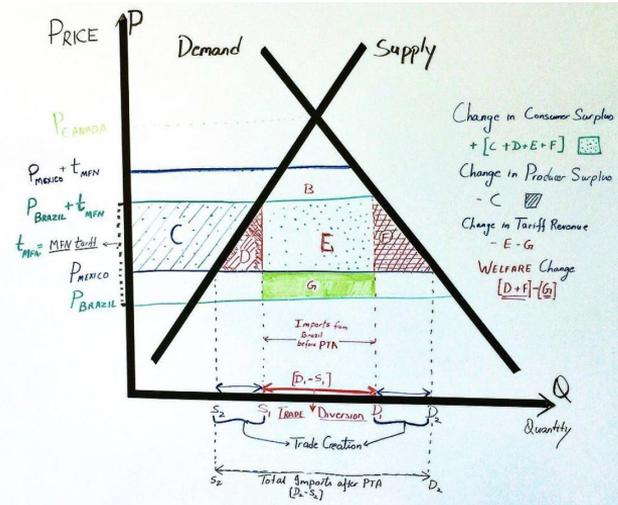 PRICE
P
Demand
Supply
PCANADA
PMEXICO + tMFN
PBRAZIL + tMFN
tMFN = MFN tariff
PMEXICO
PBRAZIL
B
C
D
E
F
G
Imports from
Brazil
before PTA
[D1-S1]
S2
S1
TRADE Diversion
D1
D2
Trade Creation
S2
Total Imports after PTA
[D2-S2]
D2
Q
Quantity
Change in Consumer Surplus
+ [C+D+E+F]
Change in Producer Surplus
- C
Change in Tariff Revenue
- E - G
WELFARE Change
[D+F]-[G]